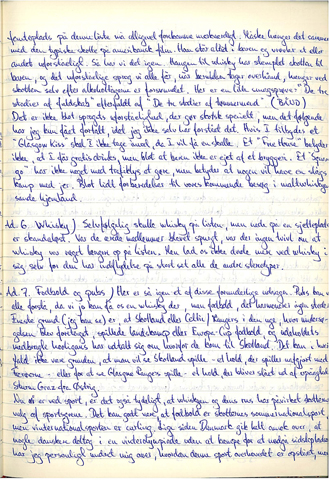 fendeplads på denne liste må alligevel forekomme mærkværdigt. Måske hænger det sammen
med den typiske skotte på amerikansk film. Han står altid i baren og vrøvler et eller
andet uforståeligt. Så har vi det igen. Hangen til whisky har stemplet skotten til
baren, og det uforståelige sprog vi alle får, når berigelsen tager overhånd, hænger ved
skotten selv efter alkoholtågerne er forsvundet. Her er en lille smagsprøve "De tre
stadier af fuldskab" efterfulgt af "De tre stadier af tømmermænd". (BILAG)
Det er ikke blot sprogets uforståelighed, der gør skotsk specielt, men det følgende
har jeg kun fået fortalt, idet jeg ikke selv har forstået det. Hvis I tilbydes et
"Glasgow Kiss" skal I ikke tage imod, da I vil få en skalle. Et "Free House" betyder
ikke, at I får gratis drinks, men blot at baren ikke er ejet af et bryggeri. Et "Square
go" har ikke noget med trafiklys at gøre, men betyder at nogen vil have en slåskamp
med jer. Blot lidt forberedelse til vores kommende besøg i
sande hjemland.
Ad. 6. Whisky) Selvfølgelig skulle whisky på listen, men nede på en sjetteplads
er skandaløst. Var de ærede medlemmer blevet spurgt, var der ingen tvivl om at
whisky var røget længere op på listen. Men lad os ikke dvæle mere ved whisky i
sig selv for den har indflydelse på stort set alle de andre stereotyper.
Ad. 7. Fodbold og pubs) Her er så igen et af disse forunderlige udsagn. Pubs kan vi
alle forstå, da vi jo kan få os en whisky der, men fodbold, det
Eneste grund (jeg kan se) er, at Skotland eller Celtic/Rangers i den uge, hvor undersø-
gelsen blev foretaget, spillede landskamp eller Europa Cup fodbold, og
har udtalt sig om hvorfor de kom til Skotland. Det kan, i hvert
fald, ikke være grunden, at man vil se Skotland spille - et hold, der spiller uafgjort mod
Færøerne - eller for at se Glasgow Rangers spille - et hold, der bliver slået ud af
Sturm Graz fra Østrig.
Nu vi er ved sport, er det også tydeligt, at whiskyen og dens rus har påvirket skotternes
valg af sportsgrene. Det kan godt være at fodbold er skotternes sommernationalsport,
men vinternationalsporten er curling. Lige siden Danmark gik helt amok over, at
nogle danskere deltog i en vinterolympiade uden at kæmpe for at undgå sidstepladsen
har jeg personligt undret mig over, hvordan denne sport overhovedet er opstået, men